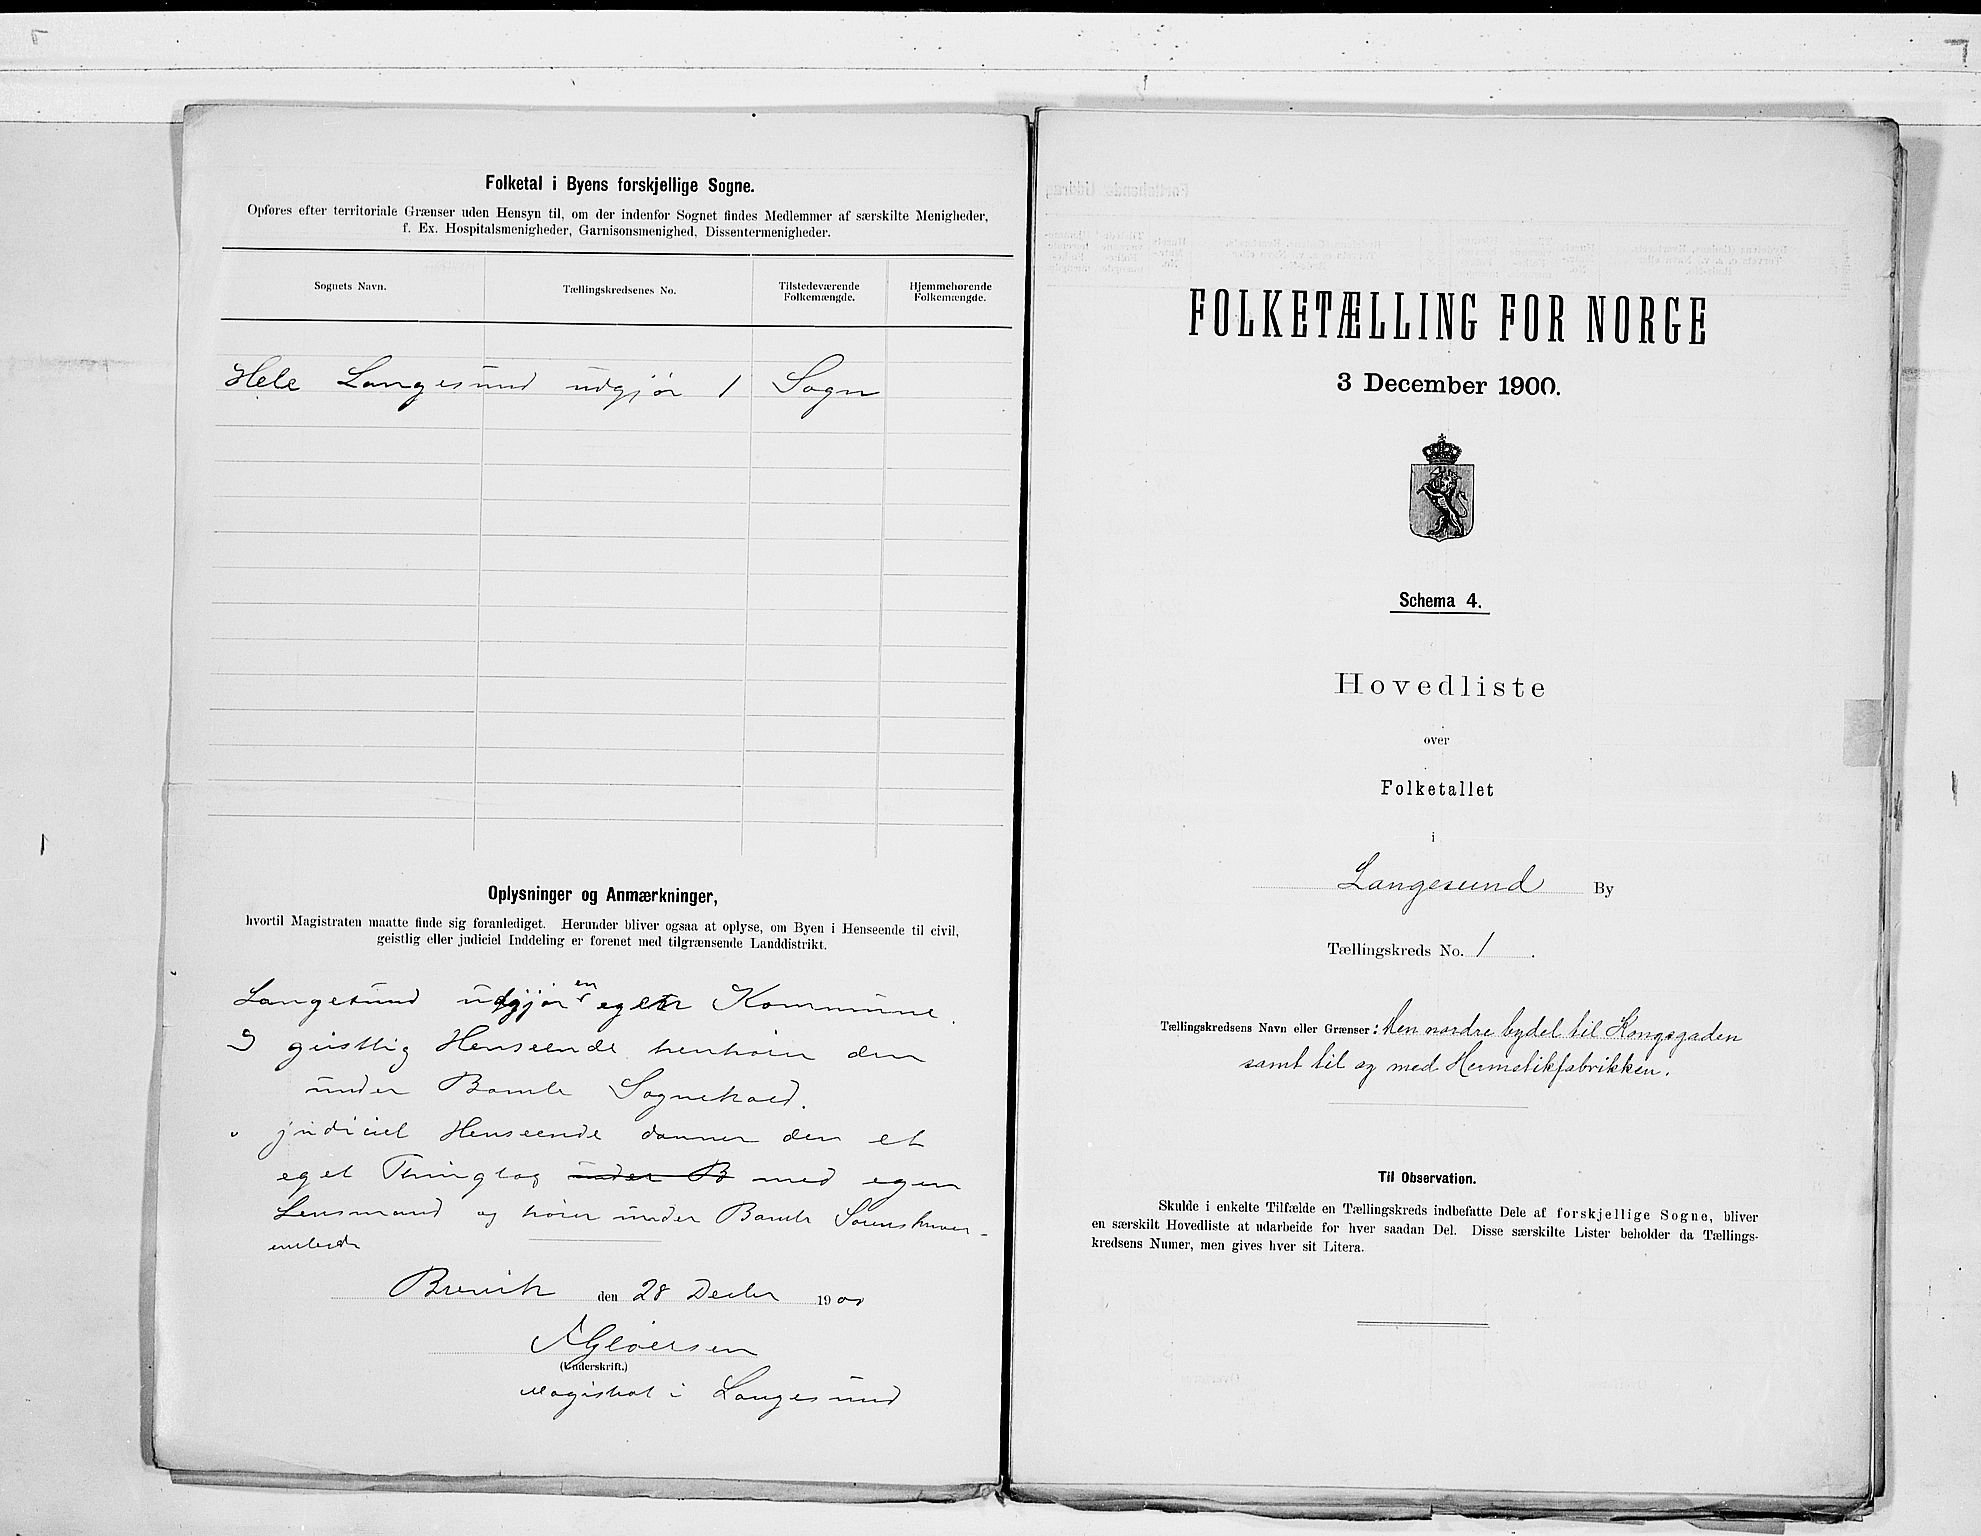 Folketal i Byens forskjellige Sogne.
Opføres efter territoriale Grænser uden Hensyn til, om der indenfor Sognet findes Medlemmer af særskilte Menigheder,
f. Ex. Hospitalsmenigheder, Garnisonsmenighed, Dissentermenigheder.
Sognets Navn.
Tællingskredsenes No.
Tilstedeværende
Folkemængde.
Hjemmehørende
Folkemængde.
Hele Langesund udgjør 1 Sogn
Oplysninger og Anmærkninger,
hvortil Magistraten maatte finde sig foranlediget. Herunder bliver ogsaa at oplyse, om Byen i Henseende til civil,
geistlig eller judiciel Inddeling er forenet med tilgrænsende Landdistrikt.
Langesund udgjør en egen Kommune.
I geistlig Henseende henhører den
under Bamle Sognekald.
judiciel Henseende danner den et
eget Thinglag under B med egen
Lensmand og hører under Bamle Sorenskriver-
embede
Brevik den 28 Decbr 1900
A Gløersen
(Underskrift.)
Magistrat i Langesund
FOLKETÆLLING FOR NORGE
3 December 1900.
Schema 4.
Hovedliste
over
Folketallet
i
Langesund By
Tællingskreds No. 1.
Tællingskredsens Navn eller Grænser: Den nordre bydel til Kongsgaden
samt til og med Hermetikfabrikken.
Til Observation.
Skulde i enkelte Tilfælde en Tællingskreds indbefatte Dele af forskjellige Sogne, bliver
en særskilt Hovedliste at udarbeide for hver saadan Del. Disse særskilte Lister beholder da Tællings-
kredsens Numer, men gives hver sit Litera.